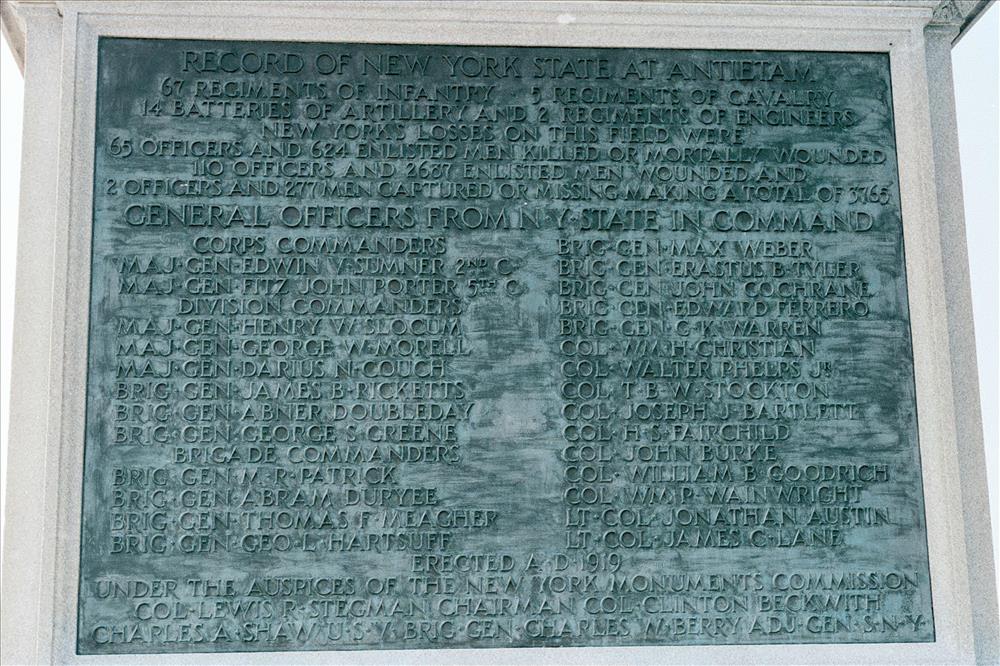 RECORD OF NEW YORK STATE AT ANTIETAM
67 REGIMENTS OF INFANTRY 5 REGIMENTS OF CAVALRY
14 BATTERIES OF ARTILLERY AND 2 REGIMENTS OF ENGINEERS
NEW YORK'S LOSSES ON THIS FIELD WERE
65 OFFICERS AND 624 ENLISTED MEN KILLED OR MORTALLY WOUNDED
110 OFFICERS AND 2687 ENLISTED MEN WOUNDED AND
2 OFFICERS AND 277 MEN CAPTURED OR MISSING MAKING A TOTAL OF 3765
GENERAL OFFICERS FROM N·Y·STATE IN COMMAND
CORPS COMMANDERS
MAJ·GEN·EDWIN V·SUMNER 2ND C
MAJ·GEN·FITZ JOHN PORTER 5TH C
DIVISION COMMANDERS
MAJ·GEN·HENRY W·SLOCUM
MAJ·GEN·GEORGE W·MORELL
MAJ·GEN·DARIUS N·COUCH
BRIG·GEN·JAMES B·RICKETTS
BRIG·GEN·ABNER DOUBLEDAY
BRIG·GEN·GEORGE S·GREENE
BRIGADE COMMANDERS
BRIG·GEN·M·R·PATRICK
BRIG·GEN·ABRAM DURYEE
BRIG·GEN·THOMAS F·MEAGHER
BRIG·GEN·GEO·L·HARTSUFF
BRIG·GEN·MAX WEBER
BRIG·GEN·ERASTUS B·TYLER
BRIG·GEN·JOHN COCHRANE
BRIG·GEN·EDWARD FERRERO
BRIG·GEN·G·K·WARREN
COL·WM·H·CHRISTIAN
COL·WALTER PHELPS JR
COL·T·B·W·STOCKTON
COL·JOSEPH J·BARTLETT
COL·H·S·FAIRCHILD
COL·JOHN BURKE
COL·WILLIAM B·GOODRICH
COL·WM·P·WAINWRIGHT
LT·COL·JONATHAN AUSTIN
LT·COL·JAMES C·LANE
ERECTED A·D·1919
UNDER THE AUSPICES OF THE NEW YORK MONUMENTS COMMISSION
COL·LEWIS R·STEGMAN CHAIRMAN COL·CLINTON BECKWITH
CHARLES A·SHAW U·S·V· BRIG·GEN·CHARLES W·BERRY ADJ·GEN·S·N·Y·